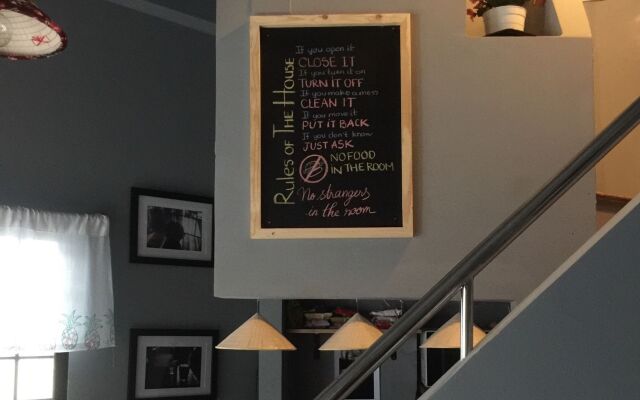 Rules of The House
If you open it
CLOSE IT
If you turn it on
TURN IT OFF
If you make a mess
CLEAN IT
If you move it
PUT IT BACK
If you don't know
JUST ASK
NO FOOD
IN THE ROOM
No strangers
in the room